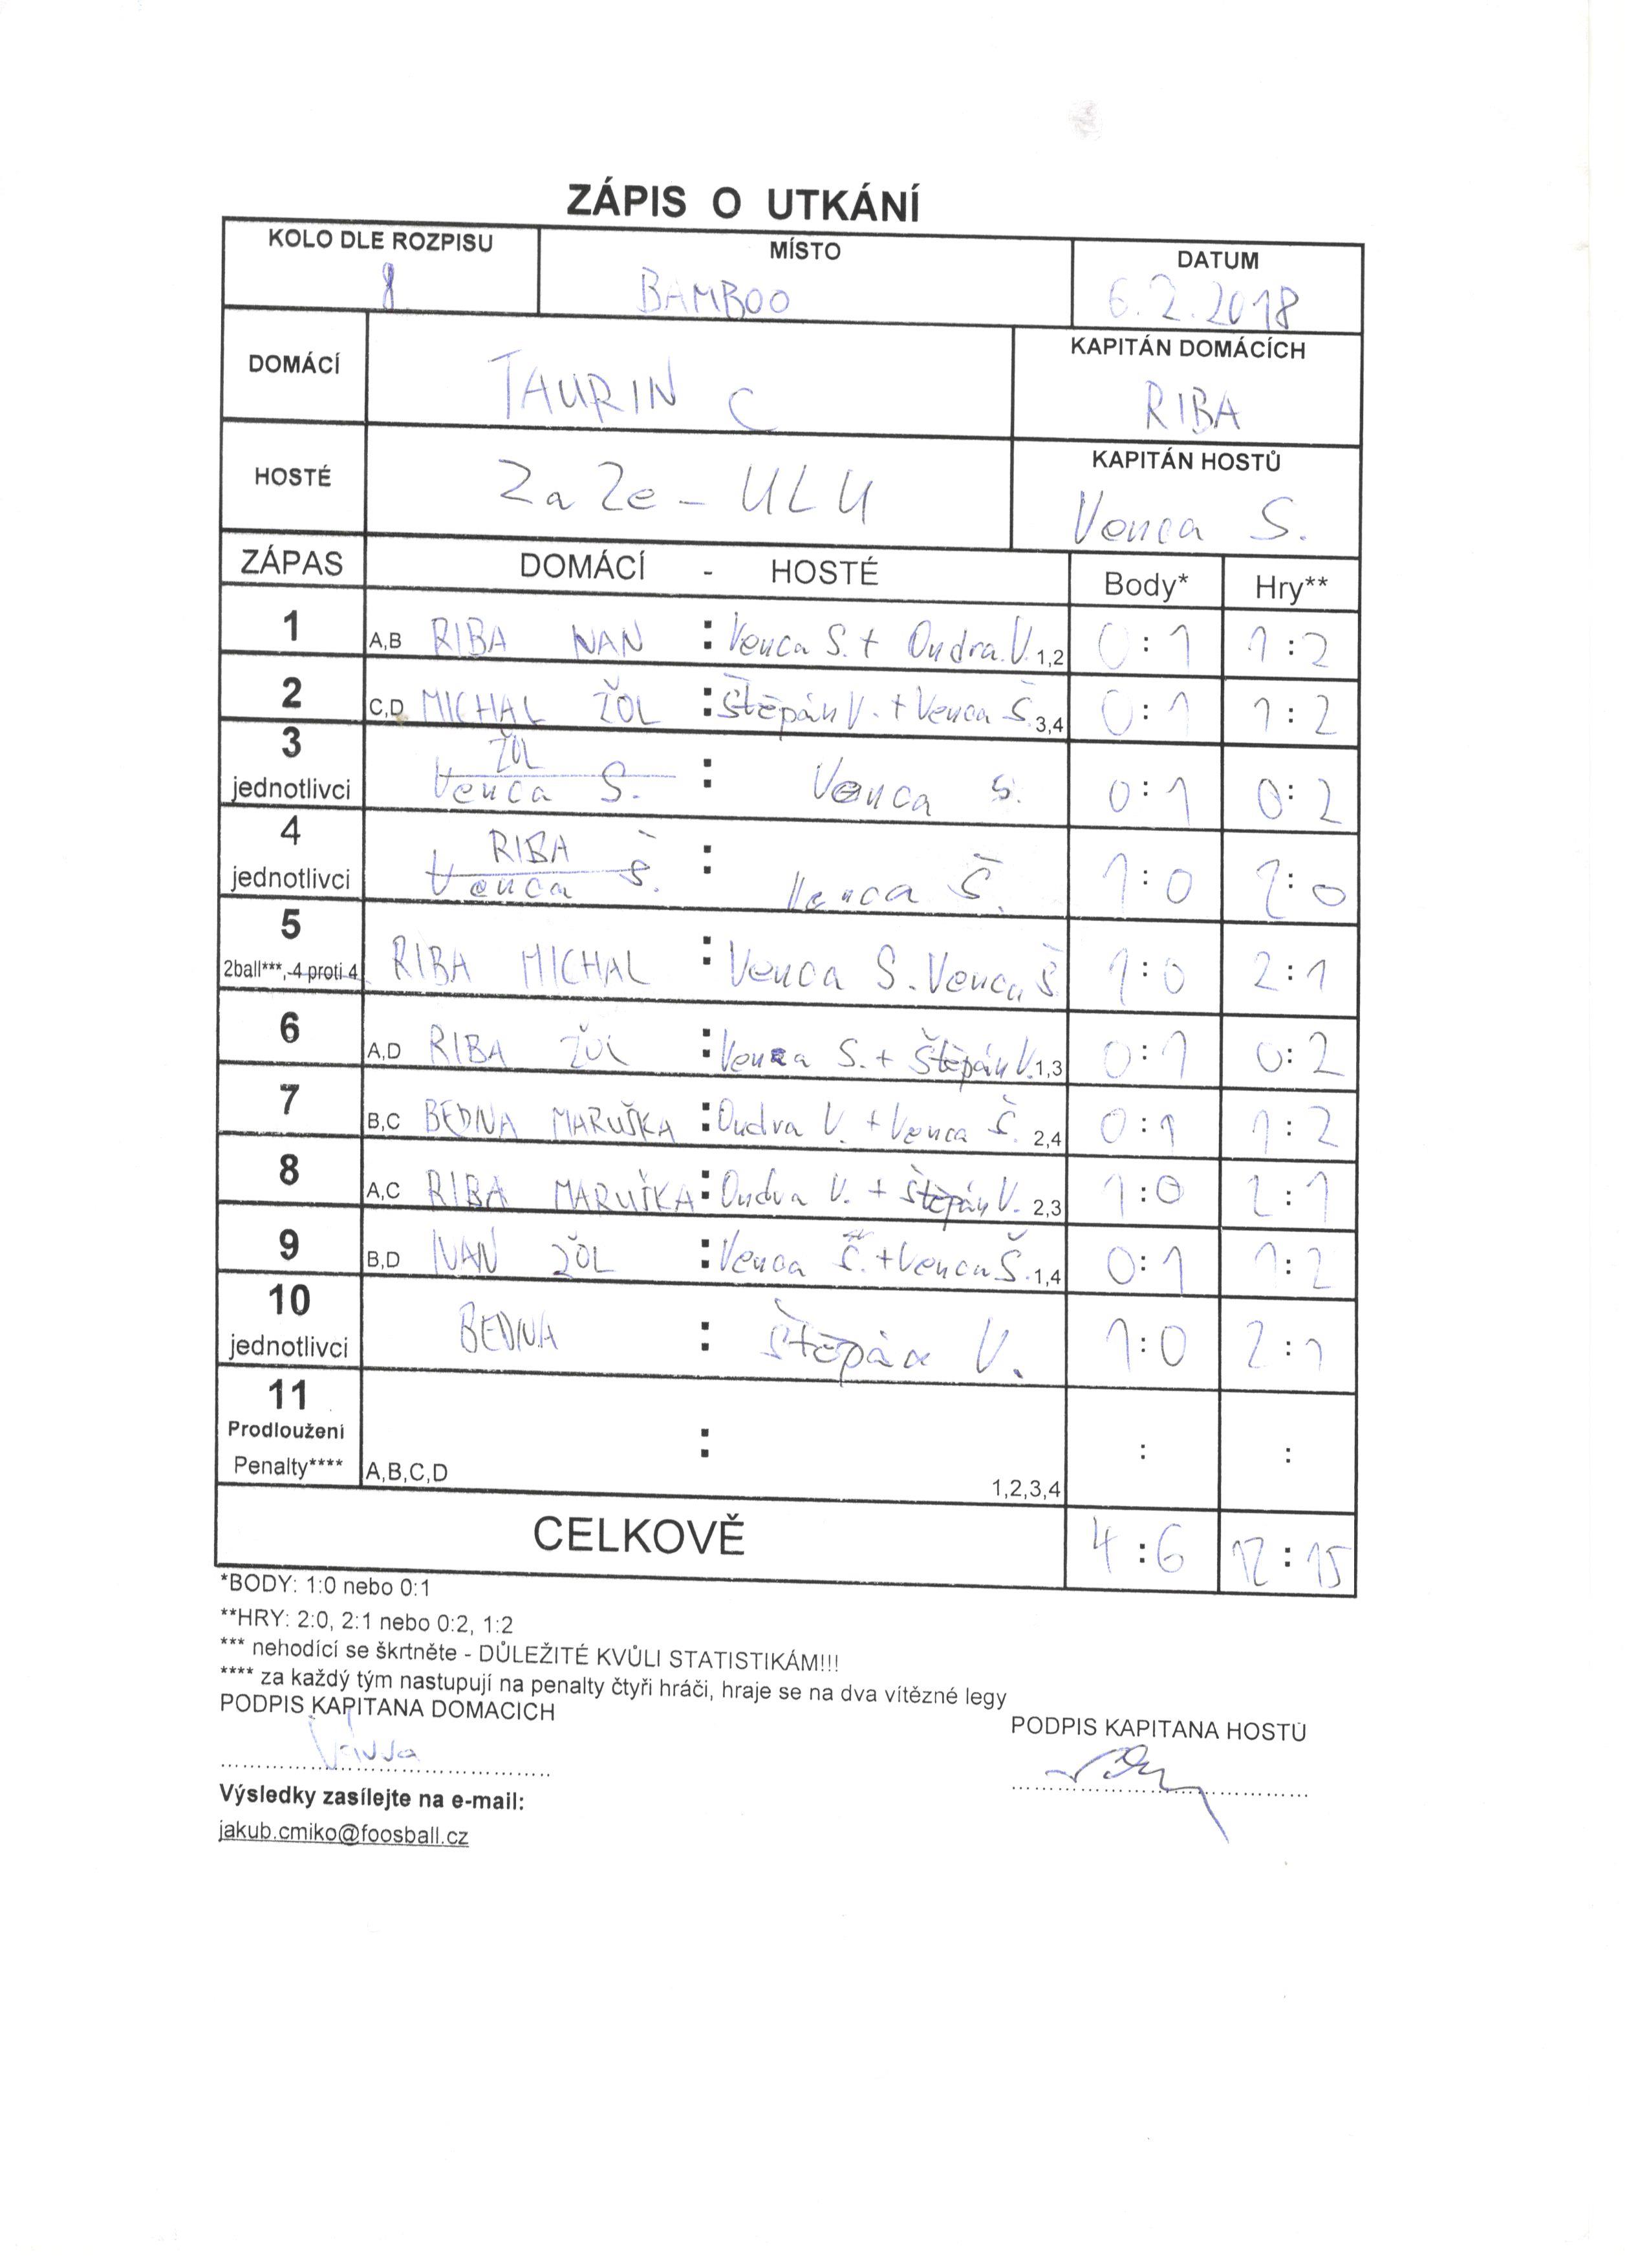 ZÁPIS O UTKÁNÍ
KOLO DLE ROZPISU MÍSTO DATUM
8 BAMBOO 6.2.2018
DOMÁCÍ TAURIN C KAPITÁN DOMÁCÍCH
RIBA
HOSTÉ ZaZe-ULU KAPITÁN HOSTŮ
Venca S.
ZÁPAS DOMÁCÍ - HOSTÉ Body* Hry**
1 A,B RIBA IVAN : Venca S. + Ondra V. 1,2 0:1 1:2
2 C,D MICHAL ŽOL : Štěpán V. + Venca Š. 3,4 0:1 1:2
3 ŽOL
jednotlivci Venca S. : Venca S. 0:1 0:2
4 RIBA
jednotlivci Venca Š. : Venca Š. 1:0 2:0
5
2ball***, 4 proti 4 RIBA MICHAL : Venca S. Venca Š 1:0 2:1
6 A,D RIBA ŽOL : Venca S. + Štěpán V. 1,3 0:1 0:2
7 B,C BEDNA MARUŠKA : Ondra V. + Venca Š. 2,4 0:1 1:2
8 A,C RIBA MARUŠKA : Ondra V. + Štěpán V. 2,3 1:0 2:1
9 B,D IVAN ŽOL : Venca S. + Venca Š. 1,4 0:1 1:2
10
jednotlivci BEDNA : Štěpán V. 1:0 2:1
11
Prodloužení : : :
Penalty**** A,B,C,D 1,2,3,4
CELKOVĚ 4:6 12:15
*BODY: 1:0 nebo 0:1
**HRY: 2:0, 2:1 nebo 0:2, 1:2
*** nehodící se škrtněte - DŮLEŽITÉ KVŮLI STATISTIKÁM!!!
**** za každý tým nastupují na penalty čtyři hráči, hraje se na dva vítězné legy
PODPIS KAPITANA DOMACICH PODPIS KAPITANA HOSTŮ
Výsledky zasílejte na e-mail:
jakub.cmiko@foosball.cz